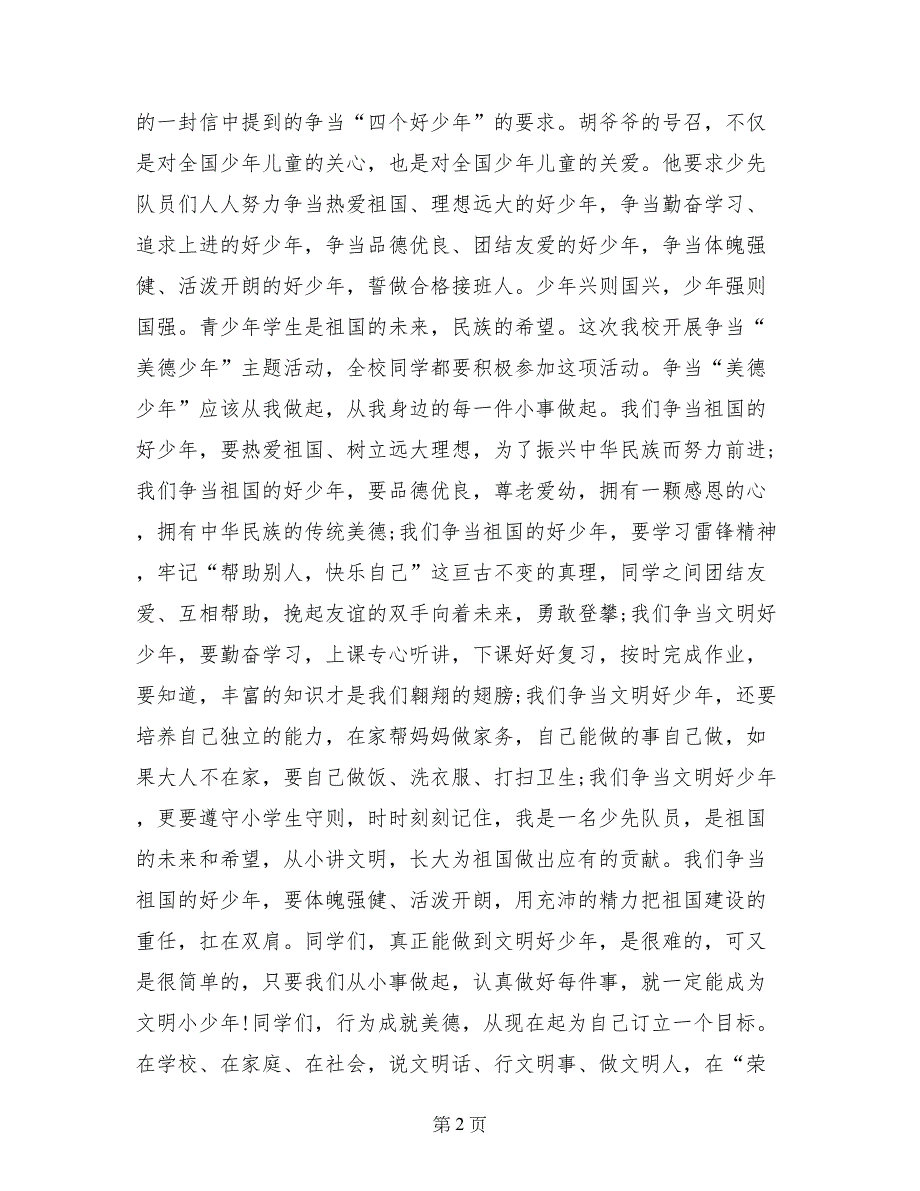 的一封信中提到的争当“四个好少年”的要求。胡爷爷的号召，不仅
是对全国少年儿童的关心，也是对全国少年儿童的关爱。他要求少先
队员们人人努力争当热爱祖国、理想远大的好少年，争当勤奋学习、
追求上进的好少年，争当品德优良、团结友爱的好少年，争当体魄强
健、活泼开朗的好少年，誓做合格接班人。少年兴则国兴，少年强则
国强。青少年学生是祖国的未来，民族的希望。这次我校开展争当“
美德少年”主题活动，全校同学都要积极参加这项活动。争当“美德
少年”应该从我做起，从我身边的每一件小事做起。我们争当祖国的
好少年，要热爱祖国、树立远大理想，为了振兴中华民族而努力前进;
我们争当祖国的好少年，要品德优良，尊老爱幼，拥有一颗感恩的心
，拥有中华民族的传统美德;我们争当祖国的好少年，要学习雷锋精神
，牢记“帮助别人，快乐自己”这亘古不变的真理，同学之间团结友
爱、互相帮助，挽起友谊的双手向着未来，勇敢登攀;我们争当文明好
少年，要勤奋学习，上课专心听讲，下课好好复习，按时完成作业，
要知道，丰富的知识才是我们翱翔的翅膀;我们争当文明好少年，还要
培养自己独立的能力，在家帮妈妈做家务，自己能做的事自己做，如
果大人不在家，要自己做饭、洗衣服、打扫卫生;我们争当文明好少年
，更要遵守小学生守则，时时刻刻记住，我是一名少先队员，是祖国
的未来和希望，从小讲文明，长大为祖国做出应有的贡献。我们争当
祖国的好少年，要体魄强健、活泼开朗，用充沛的精力把祖国建设的
重任，扛在双肩。同学们，真正能做到文明好少年，是很难的，可又
是很简单的，只要我们从小事做起，认真做好每件事，就一定能成为
文明小少年!同学们，行为成就美德，从现在起为自己订立一个目标。
在学校、在家庭、在社会，说文明话、行文明事、做文明人，在“荣
第 2 页